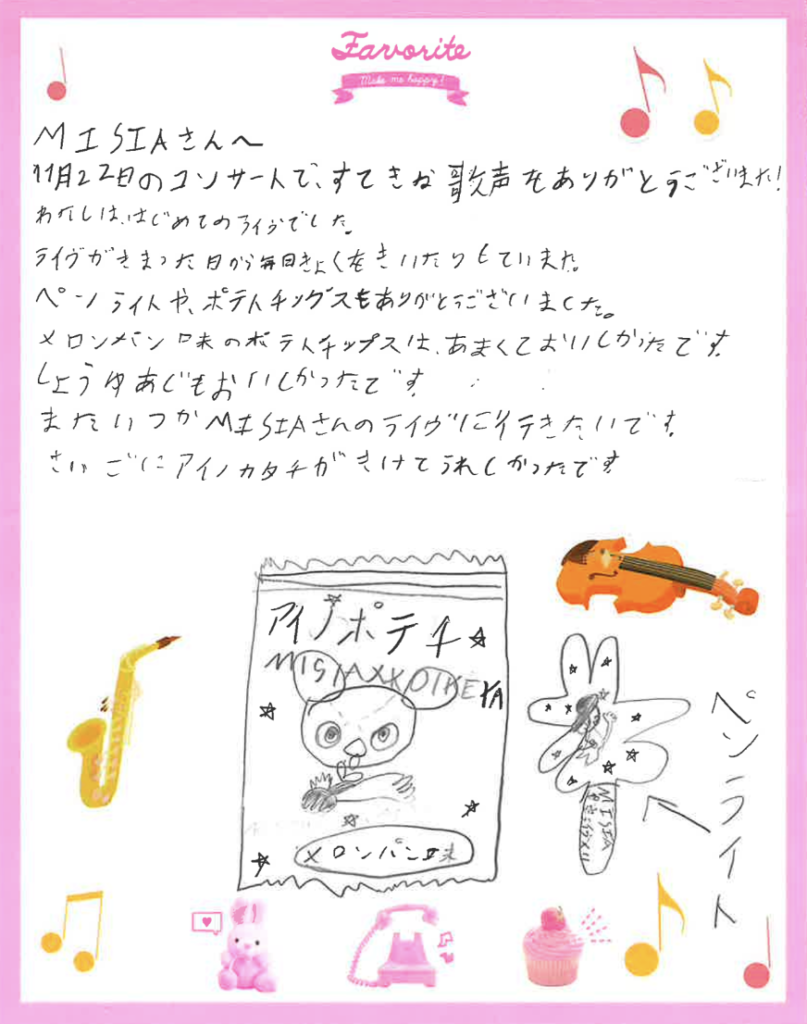 Favorite
Make me happy!
MISIAさんへ
11月22日のコンサートで、すてきな歌声をありがとうございました!
わたしは、はじめてのライヴでした。
ライヴがきまった日から毎日きょくをきいたりしていました。
ペンライトや、ポテトチップスもありがとうございました。
メロンパン味のポテトチップスは、あまくておいしかったです。
しょうゆあじもおいしかったです。
またいつかMISIAさんのライヴに行きたいです。
さいごにアイノカタチがきけてうれしかったです
アイノポテチ
MISIAXKOIKEYA
メロンパン味
ペンライト
MISIA